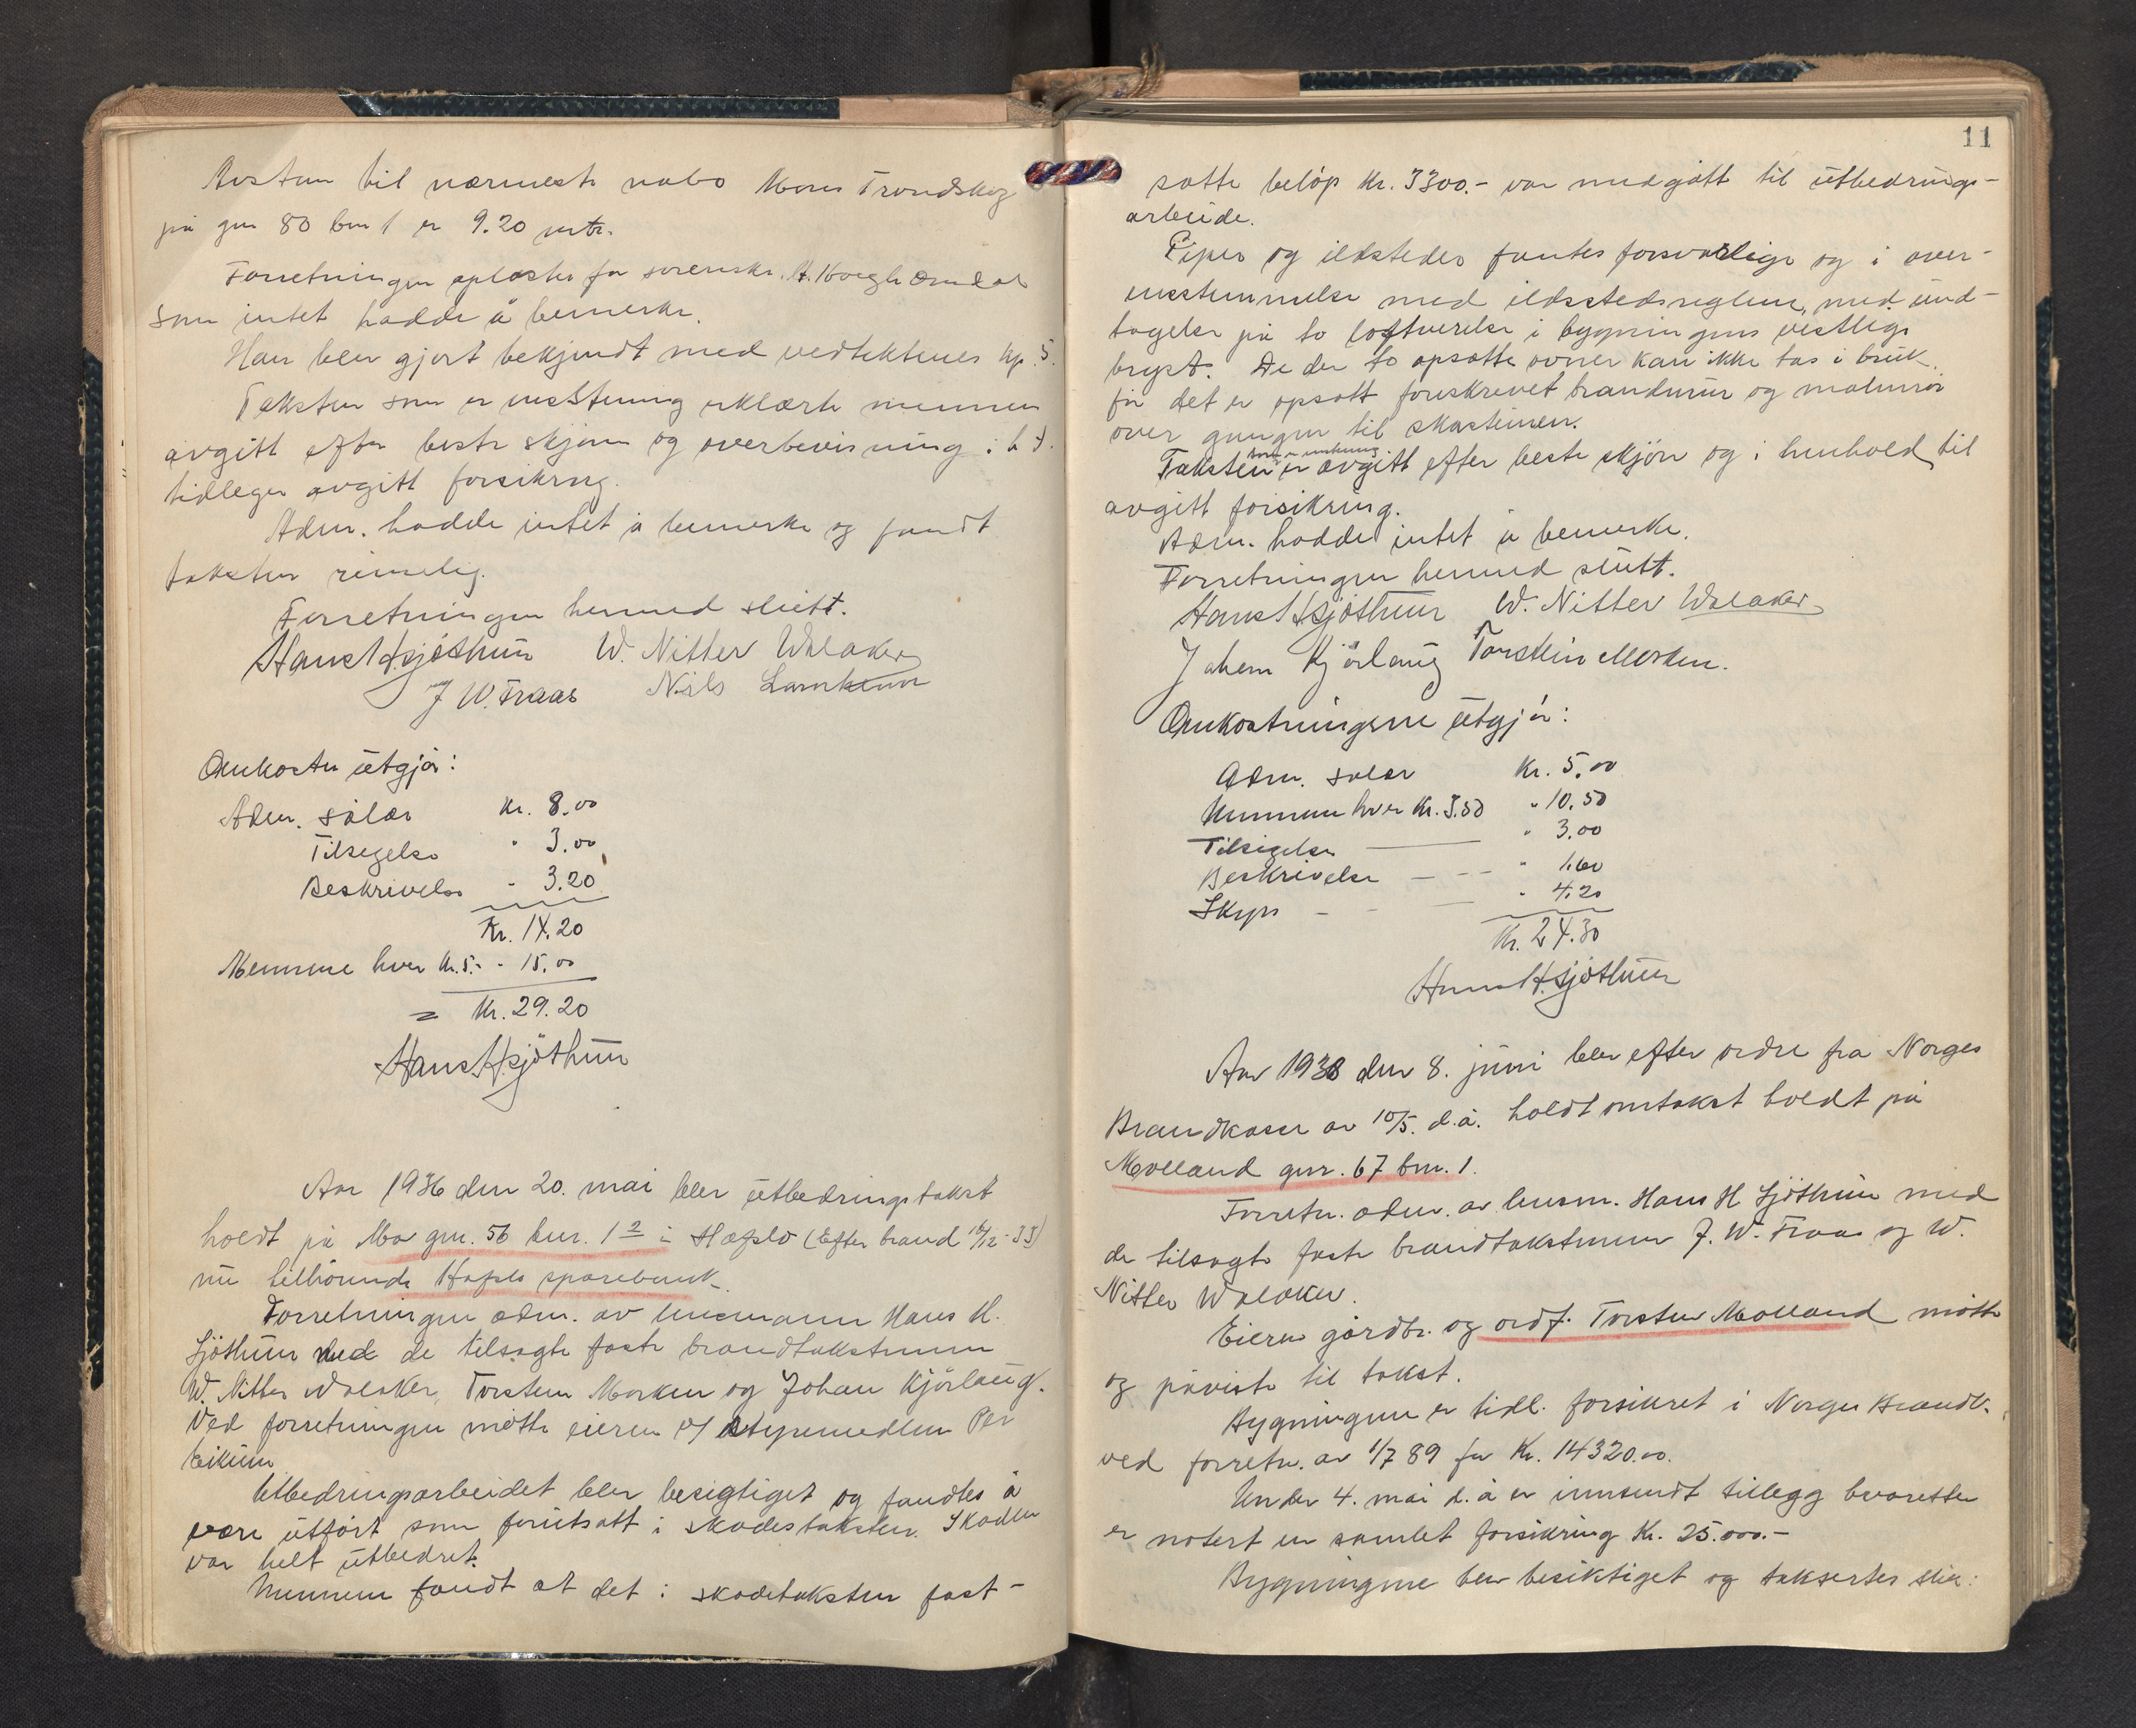 Avstan til nærmeste nabo Mons Trondskog
på gnr 80 bnr 1 er 9.20 mtr.
Forretningen oplæstes for sorenskr.
som intet hadde å bemerke.
Han blev gjort bekjendt med vedtektenes kp. 5.
Taksten som er enstemmig erklærte mennene
avgitt efter beste skjøn og overbevisning i h. t.
tidlegere avgitt forsikring.
Adm. hadde intet å bemerke og fandt
taksten rimelig.
Forretningen hermed slutt.
Hans H Sjöthun W. Nitter Walaker
J W. Fraas Nils
Omkostn utgjör:
Adm. salær Kr. 8.00
Tilsigelse " 3.00
Beskrivelse " 3.20
Kr. 14.20
Mennene hver Kr. 5.- " 15.00
= Kr. 29.20
Hans H Sjöthun
Aar 1936 den 20. mai blev utbedringstakst
holdt på Mo gnr. 56 bnr. 1² i Hafslo (Efter brand 16/12-35)
nu tilhörende Hafslo sparebank
Forretningen adm. av lensmann Hans H.
Sjöthun med de tilsagte faste brandtakstmenn
W. Nitter Walaker, Torsten Morken og Johan Kjörlaug.
Ved forretningen mötte eieren v/ styremedlem Per
Eikum
Utbedringsarbeidet blev besigtiget og fandtes å
være utfört som forutsatt i skadestaksten. Skaden
var helt utbedret.
Mennene fandt at det i skadetaksten fast-
11
satte belöp Kr. 3300.- var medgått til utbedrings-
arbeide.
Piper og ildsteder fantes forsvarlige og i over-
ensstemmelse med ildstedsreglene, med und-
tagelse på to loftverelse i bygningens vestlige
bryst. De der to opsatte ovner kan ikke tas i bruk
för det er opsatt foreskrevet brandmur og
over gangen til skorsteinen.
som er enstemmig
Taksten er avgitt efter beste skjön og i henhold til
avgitt forsikring.
Adm. hadde intet å bemerke.
Forretningen hermed slutt.
Hans H Sjöthun W. Nitter Walaker
Johan Kjörlaug Torstein Morken.
Omkostningene utgjör:
Adm. salær Kr. 5.00
Mennene hver Kr. 3.50 " 10.50
Tilsigelse " 3.00
Beskrivelse " 1.60
Skyss " 4.20
Kr. 24.30
Hans H. Sjöthun
Aar 1938 den 8. juni blev efter ordre fra Norges
Brandkasse av 10/5. d.å. holdt omtakst holdt på
Molland gnr. 67 bnr. 1.
Forretn. adm. av lensm. Hans H Sjöthun med
de tilsagte faste brandtakstmenn J. W. Fraas og W.
Nitter Walaker.
Eieren gårdbr. og ordf. Torsten Molland mötte
og påviste til takst.
Bygningene er tidl. forsikret i Norges Brandk.
ved forretn. av 1/7 89 for Kr. 14320.00.
Under 4. mai d.å er innsendt tillegg hvoretter
er notert en samlet forsikring Kr. 25.000.-
Bygningene blev besiktiget og taksertes slik: